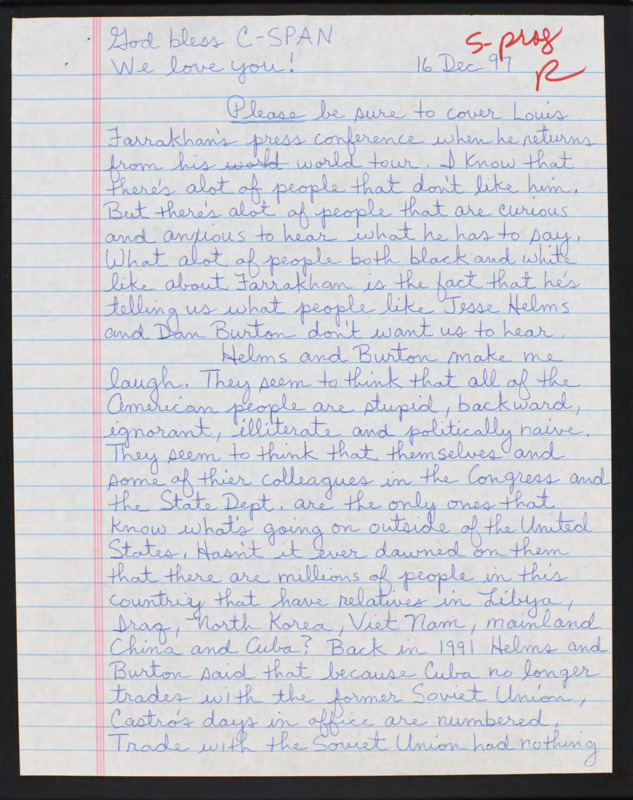 God bless C-SPAN
We love you!
S-prog
R
16 Dec 97
Please be sure to cover Louis
Farrakhan's press conference when he returns
from his world world tour. I know that
there's alot of people that don't like him.
But there's alot of people that are curious
and anxious to hear what he has to say.
What alot of people both black and white
like about Farrakhan is the fact that he's
telling us what people like Jesse Helms
and Dan Burton don't want us to hear.
Helms and Burton make me
laugh. They seem to think that all of the
American people are stupid, backward,
ignorant, illiterate and politically naive.
They seem to think that themselves and
some of thier colleagues in the Congress and
the State Dept. are the only ones that
know what's going on outside of the United
States. Hasn't it ever dawned on them
that there are millions of people in this
countriy that have relatives in Libya,
Iraq, North Korea, Viet Nam, mainland
China and Cuba? Back in 1991 Helms and
Burton said that because Cuba no longer
trades with the former Soviet Union,
Castro's days in office are numbered.
Trade with the Soviet Union had nothing